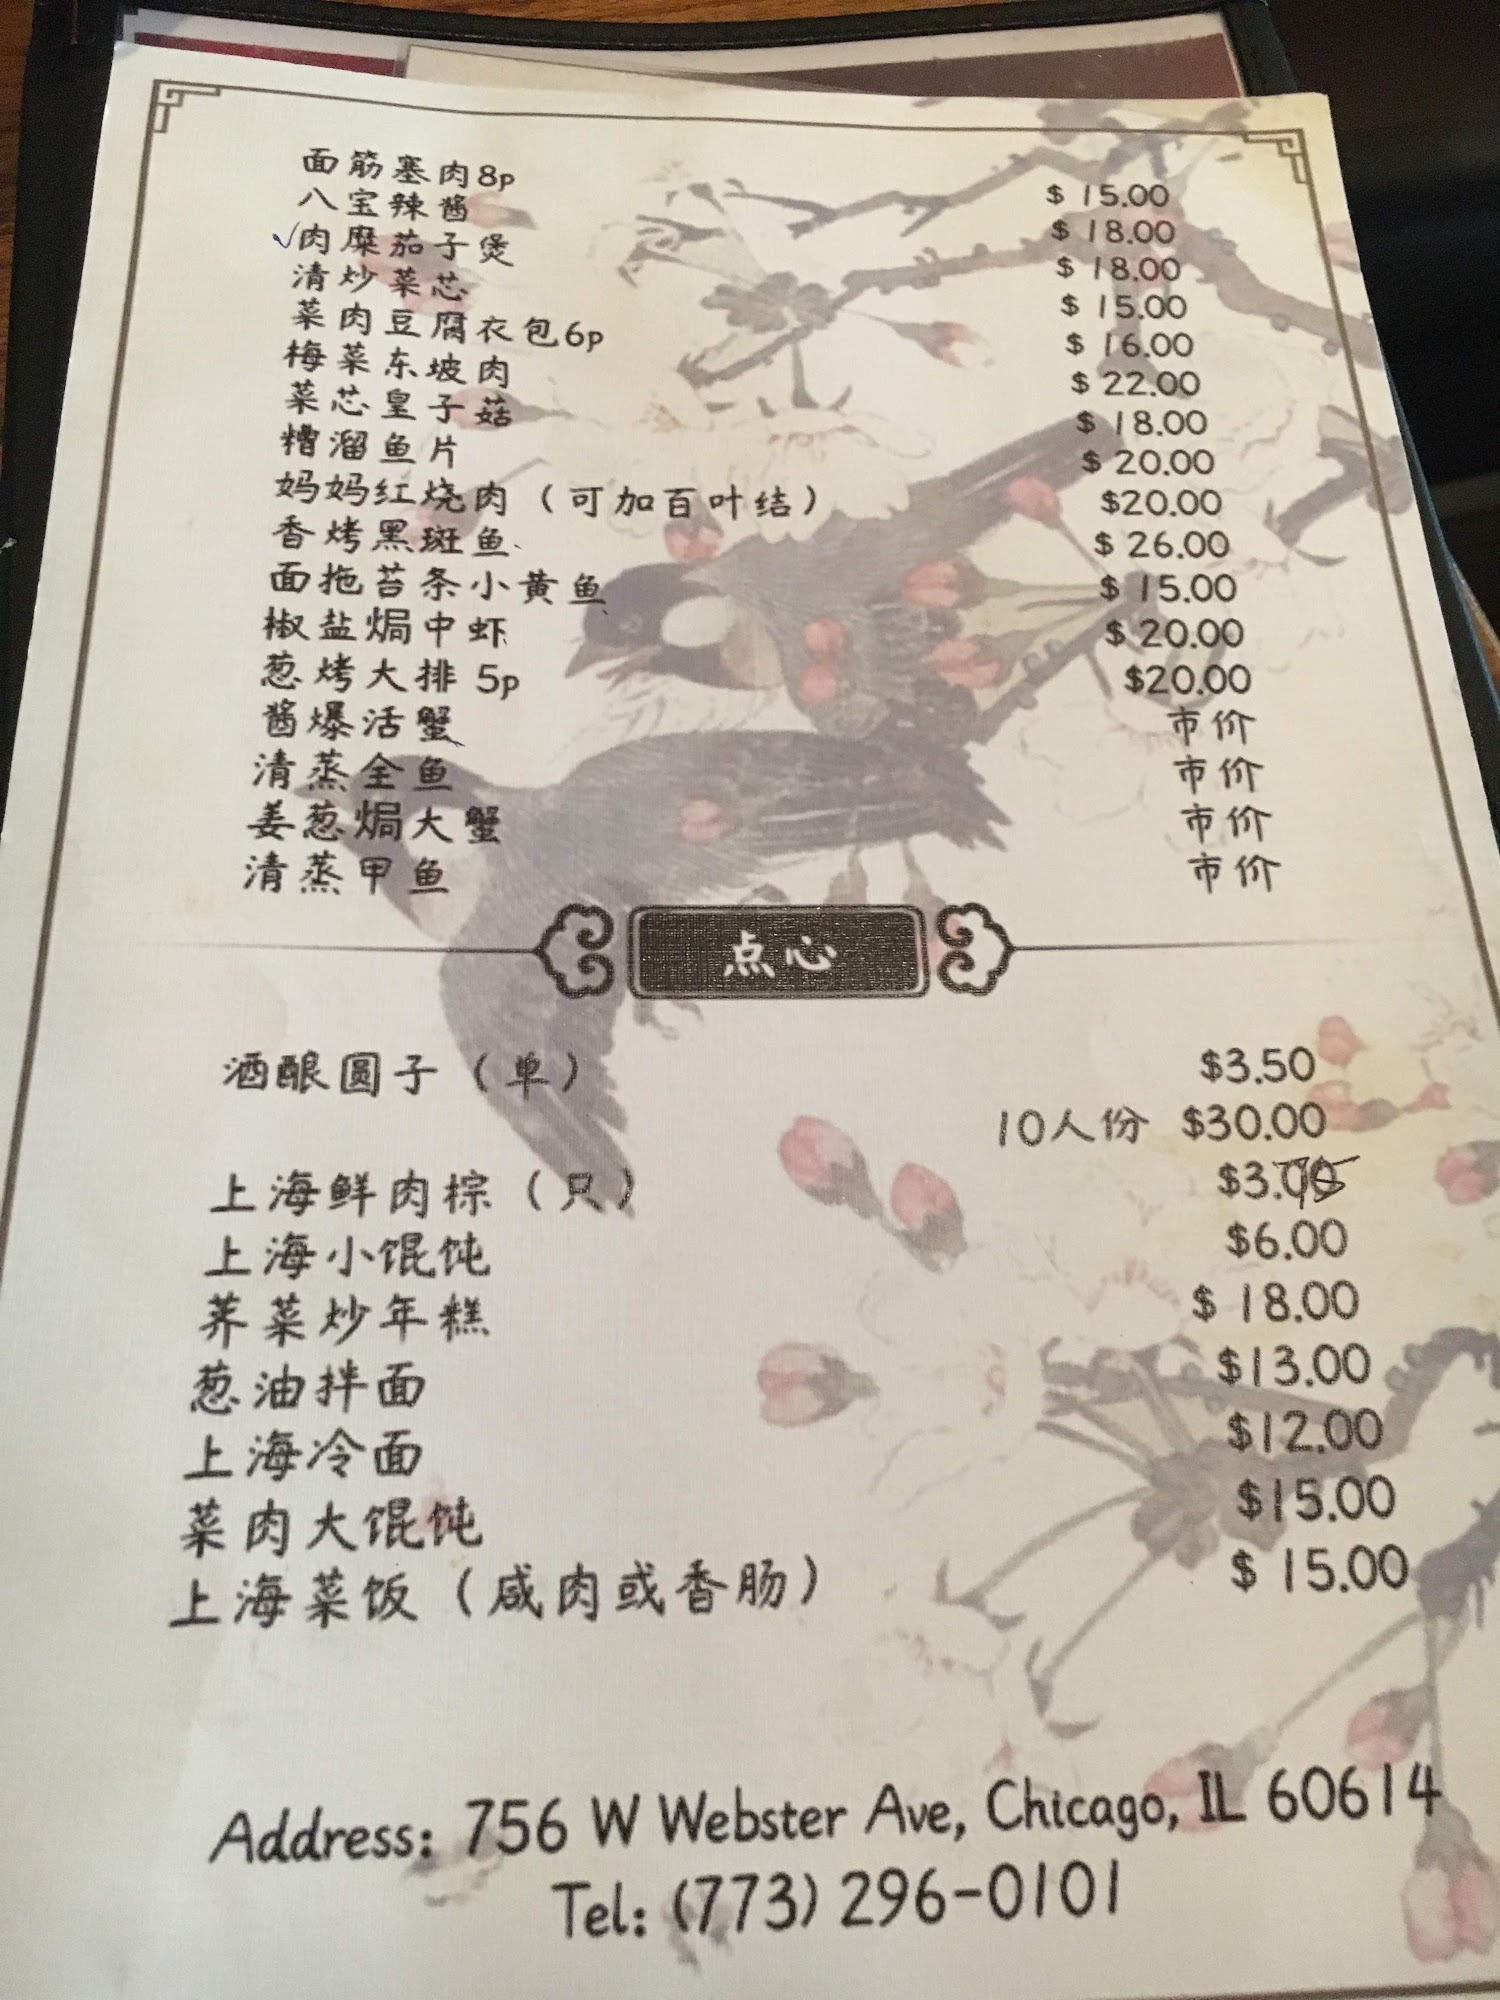 面筋塞肉8p $ 15.00
八宝辣酱 $ 18.00
肉糜茄子煲 $ 18.00
清炒菜芯 $ 15.00
菜肉豆腐衣包6p $ 16.00
梅菜东坡肉 $ 22.00
菜芯皇子菇 $ 18.00
糟溜鱼片 $ 20.00
妈妈红烧肉（可加百叶结） $20.00
香烤黑斑鱼 $ 26.00
面拖苔条小黄鱼 $ 15.00
椒盐焗中虾 $ 20.00
葱烤大排 5p $20.00
酱爆活蟹 市价
清蒸全鱼 市价
姜葱焗大蟹 市价
清蒸甲鱼 市价
点心
酒酿圆子（单） $3.50
10人份 $30.00
上海鲜肉棕（只） $3.
上海小馄饨 $6.00
荠菜炒年糕 $ 18.00
葱油拌面 $13.00
上海冷面 $12.00
菜肉大馄饨 $15.00
上海菜饭（咸肉或香肠） $ 15.00
Address: 756 W Webster Ave, Chicago, IL 60614
Tel: (773) 296-0101